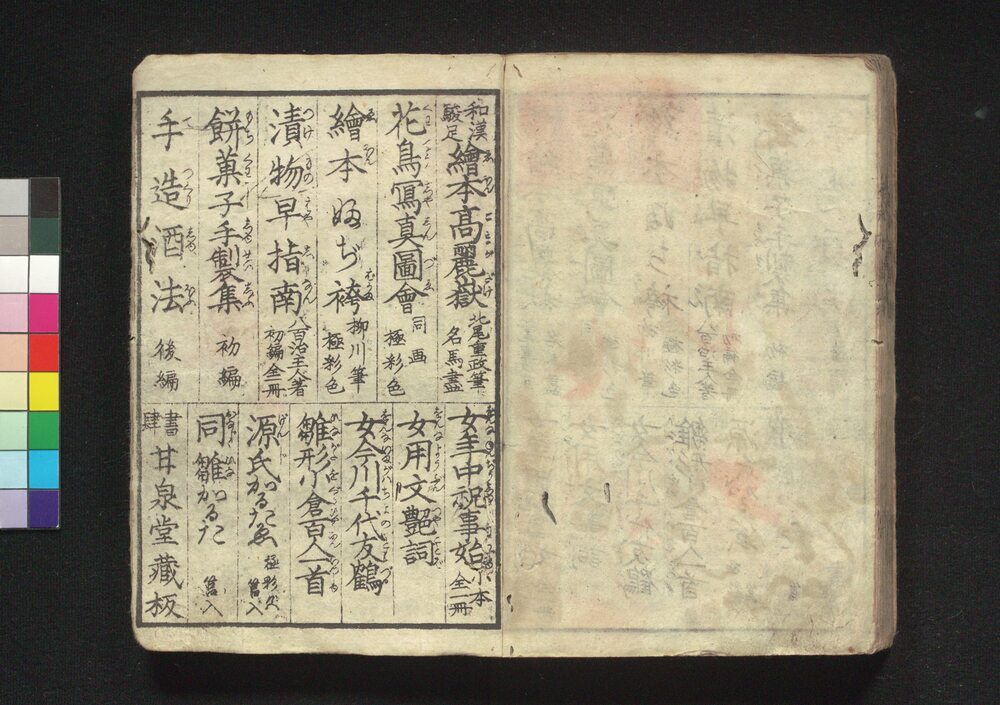 和漢駿足 繪本高麗嶽 北尾重政筆 名馬盡
花鳥寫真圖會 同画 極彩色
繪本ふぢ袴 柳川筆 極彩色
漬物早指南 八百治主人著 初編全一冊
餅菓子手製集 初編
手造酒法 後編
女年中祝事始 小本 全一冊
女用文艶詞
女今川千代友鶴
雛形小倉百人一首
源氏かるたゑ 極彩色 筥入
同雛かるた 筥入
書肆 甘泉堂藏板